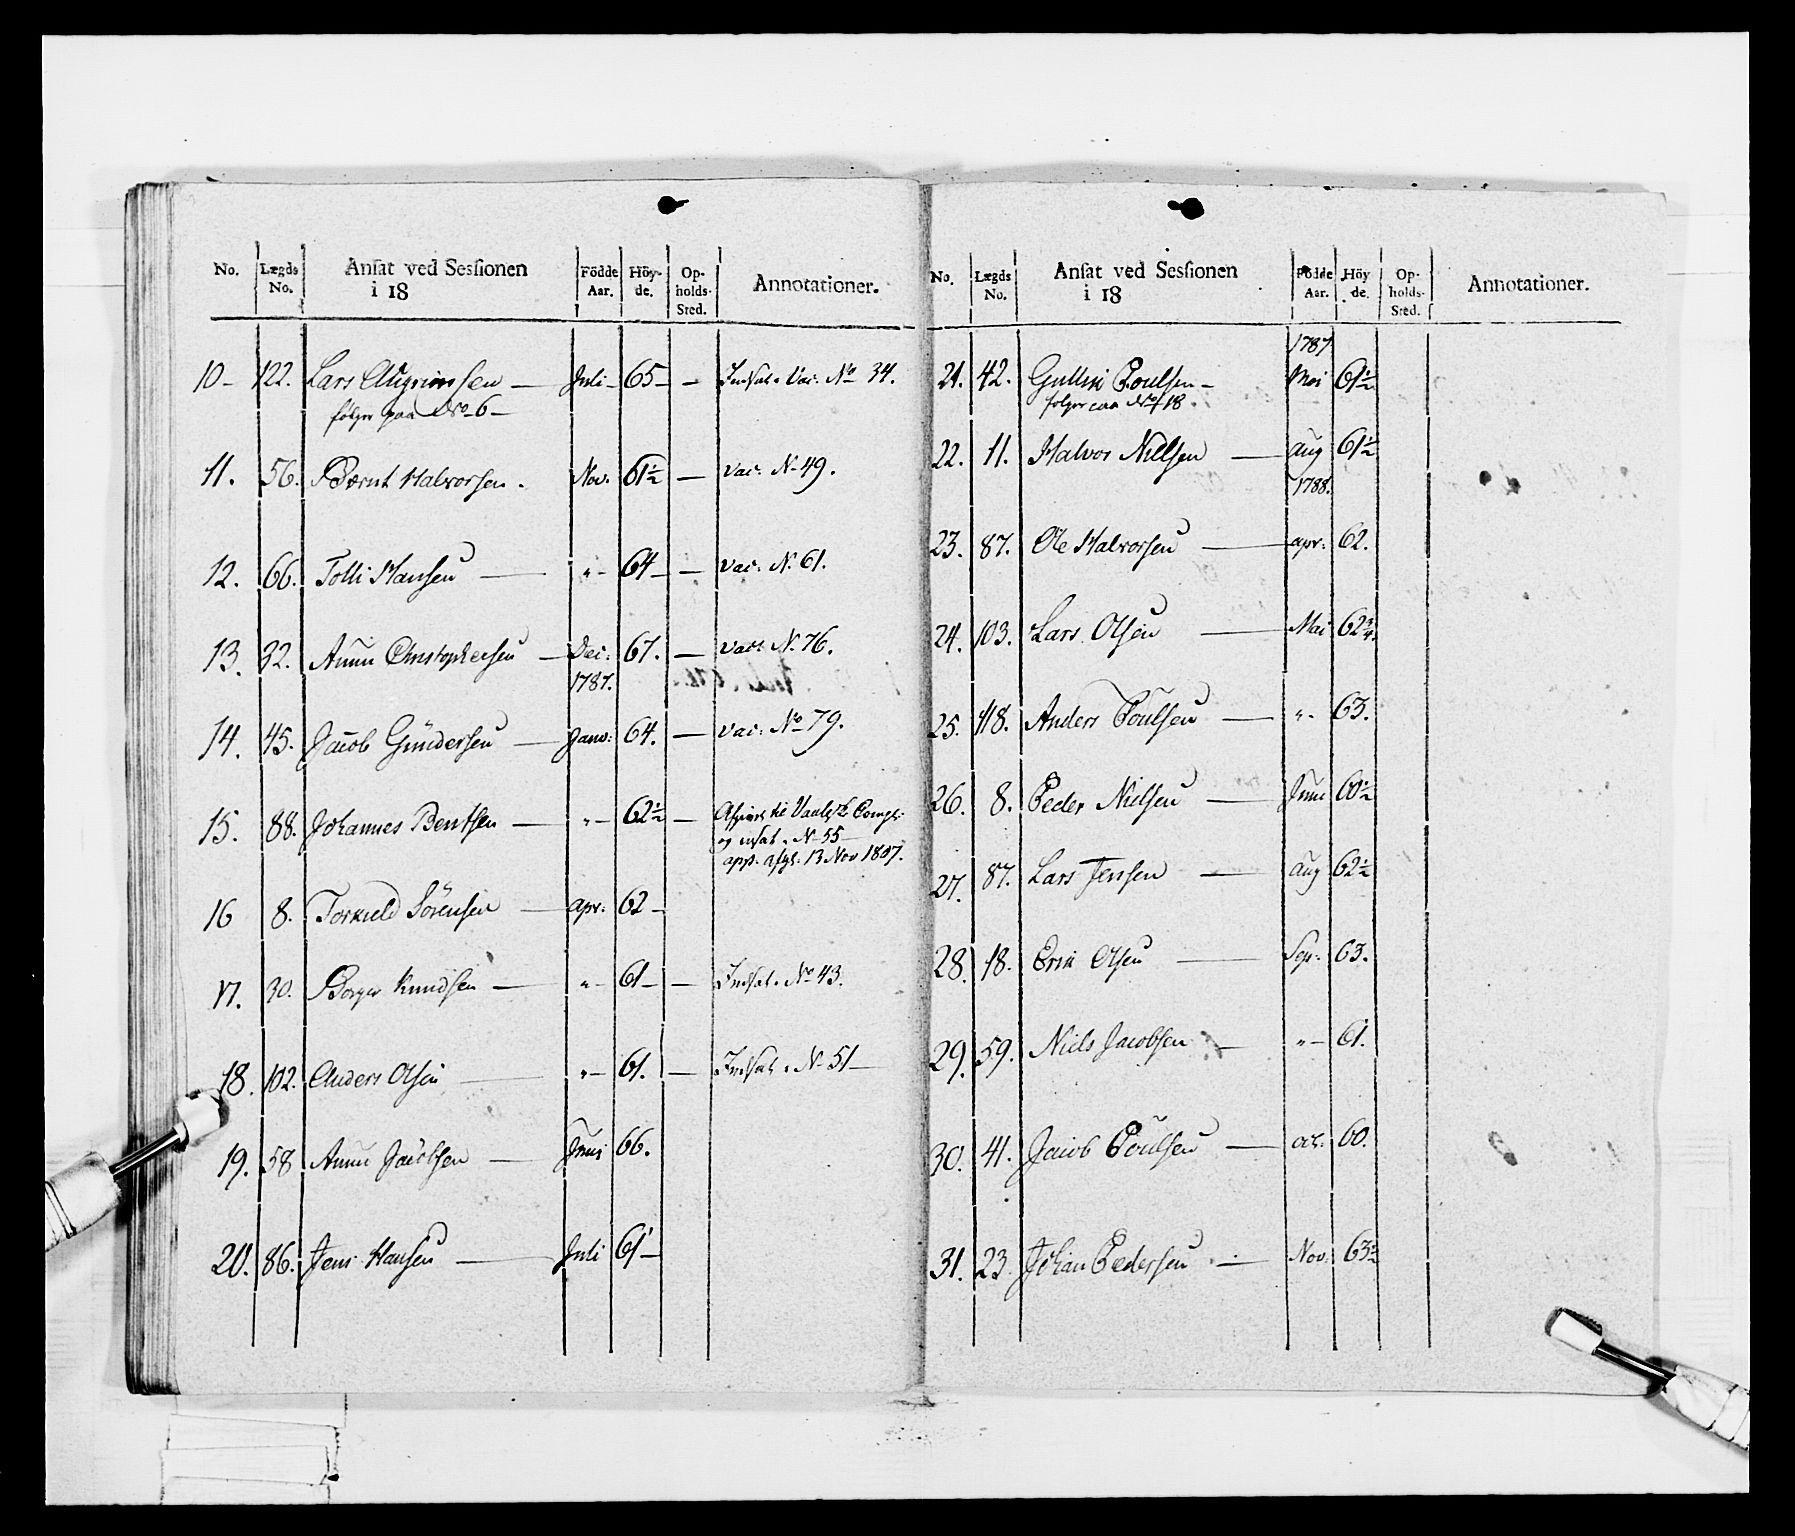 No. Lægds No. Ansat ved Sessionen i 18 Födde Aar. Höy-de. Op-holds-Sted. Annotationer.
10 - 122. Lars Asgrimsen — Juli - 65 - - Indsat. Vac: No 34.
følger paa No 6 -
11. 56. Bærnt Halvorsen. Nov. 61½ — vac: N. 49.
12. 66. Tolli Hansen — " - 64 - - vac: N. 61.
13. 32. Amun Christophersen — Dec: 67. — vac: N. 76.
1787.
14. 45. Jacob Gundersen — Janv: 64. — vac: No 79.
15. 88. Johannes Bentsen — " - 62½ — Compe:
og indsat. N. 55 -
app. afg. 13 Nov 1807.
16 8. Torkield Sörensen — apr: 62 -
17. 30. Borger Knudsen — " - 61 - — Indsat. No 43.
18. 102. Anders Olsen — " - 61. — Indsat. N. 51 —
19. 58 Amun Jacobsen — Juni 66.
20. 86. Jens Hansen — Juli 61 -
No. Lægds No. Ansat ved Sessionen i 18 Födde Aar. Höy de. Op-holds-Sted. Annotationer.
1787
21. 42. Poulsen - Mai 61½
følger No 18
22. 11. Halvor Nielsen — aug 61½
1788.
23. 87. Ole Halvorsen — apr: 62.
24. 103. Lars Olsen — Mai 62¾.
25. 118. Anders Poulsen — " - 63.
26. 8. Peder Nielsen — Juni 60½
27. 87. Lars Jensen — aug 62½
28. 18. Erik Olsen — Sep: 63.
29. 59. Niels Jacobsen — " - 61.
30. 41. Jacob Poulsen — oct. 60.
31. 23. Johan Pedersen — Nov: 63½